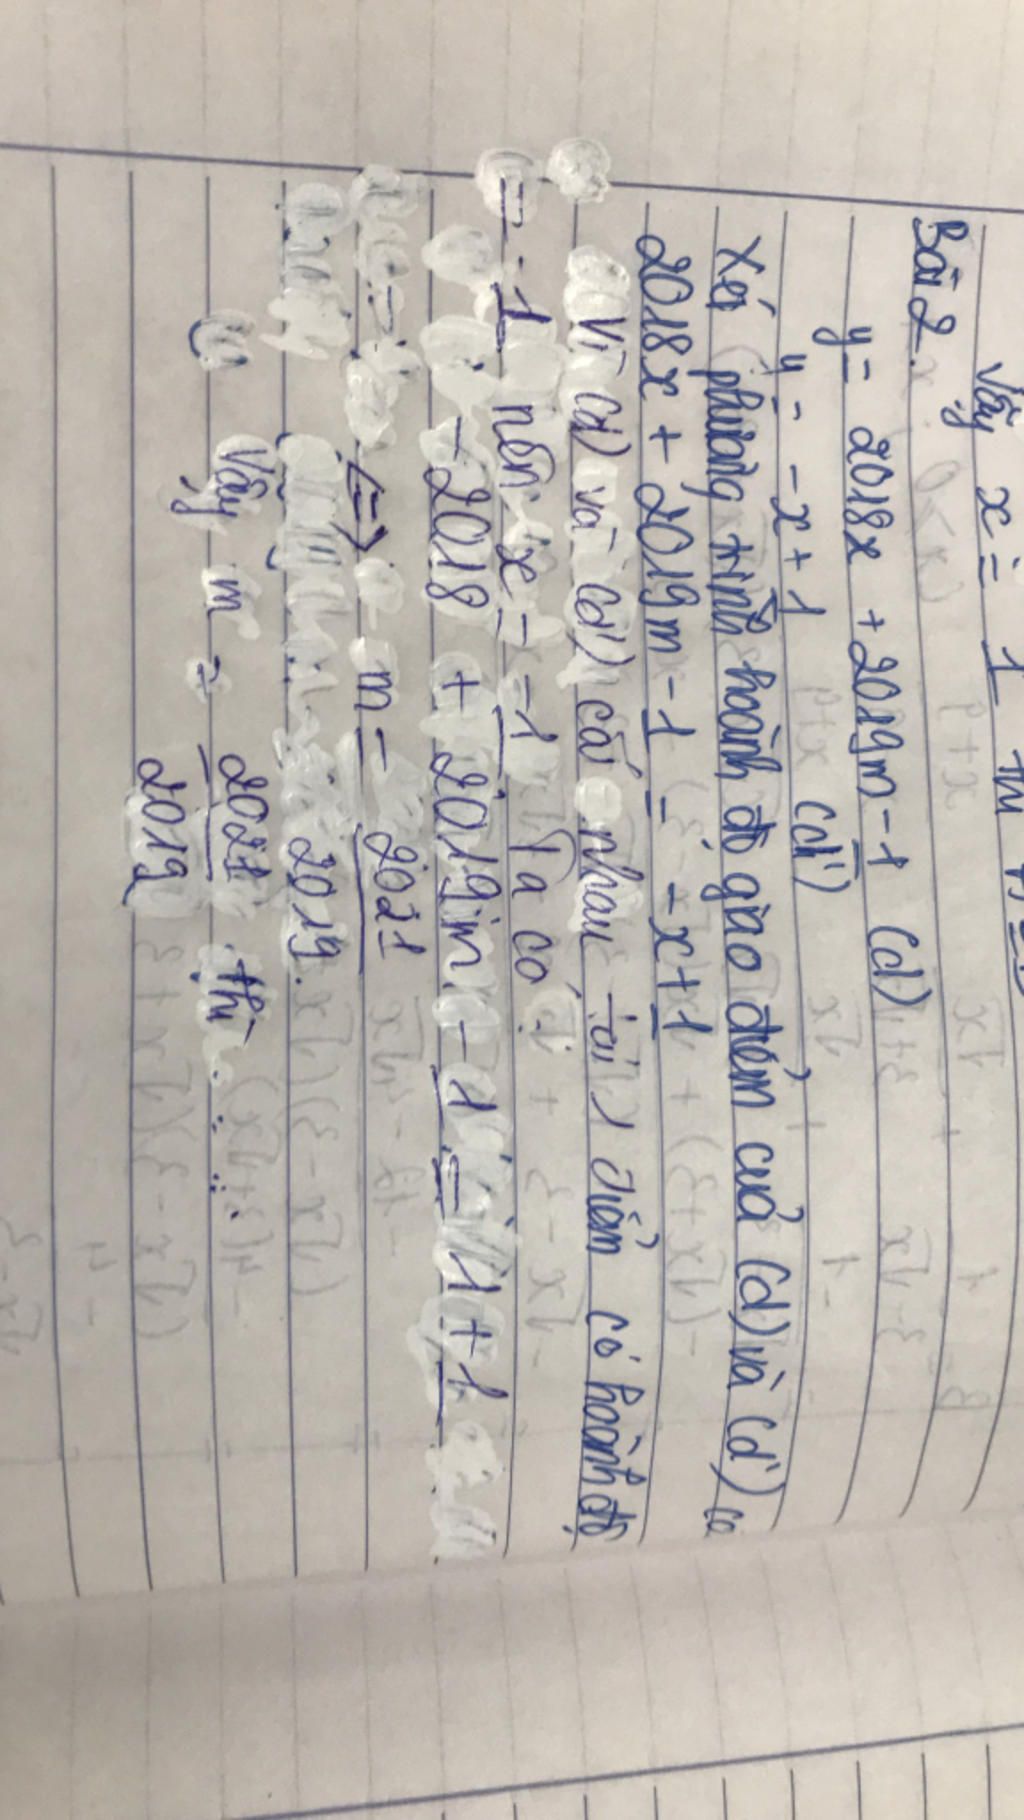 Vậy x = 1 thì
Bài 2.
y = 2018x + 2019m - 1 (d)
y = -x + 1 (d')
Xét phương trình hoành độ giao điểm của (d) và (d') có
2018x + 2019m - 1 = -x + 1
Vì (d) và (d') cắt nhau tại 1 điểm có hoành độ
= -1 nên x = -1. Ta có:
-2018 + 2019m - 1 = 1 + 1
<=> m = 2021
2019
Vậy m = 2021 thì ....
2019